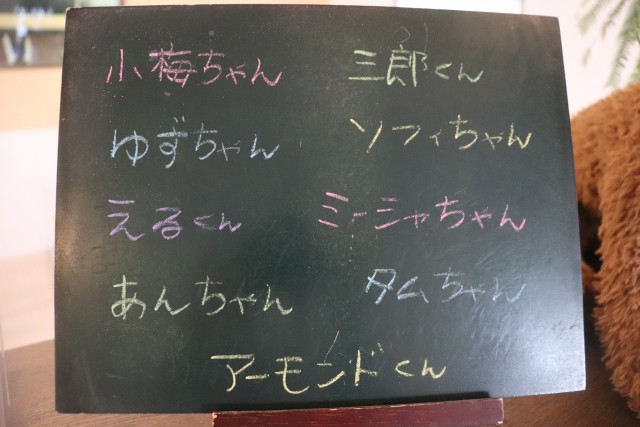 小梅ちゃん 三郎くん
ゆずちゃん ソフィちゃん
えるくん ミーシャちゃん
あんちゃん タムちゃん
アーモンドくん